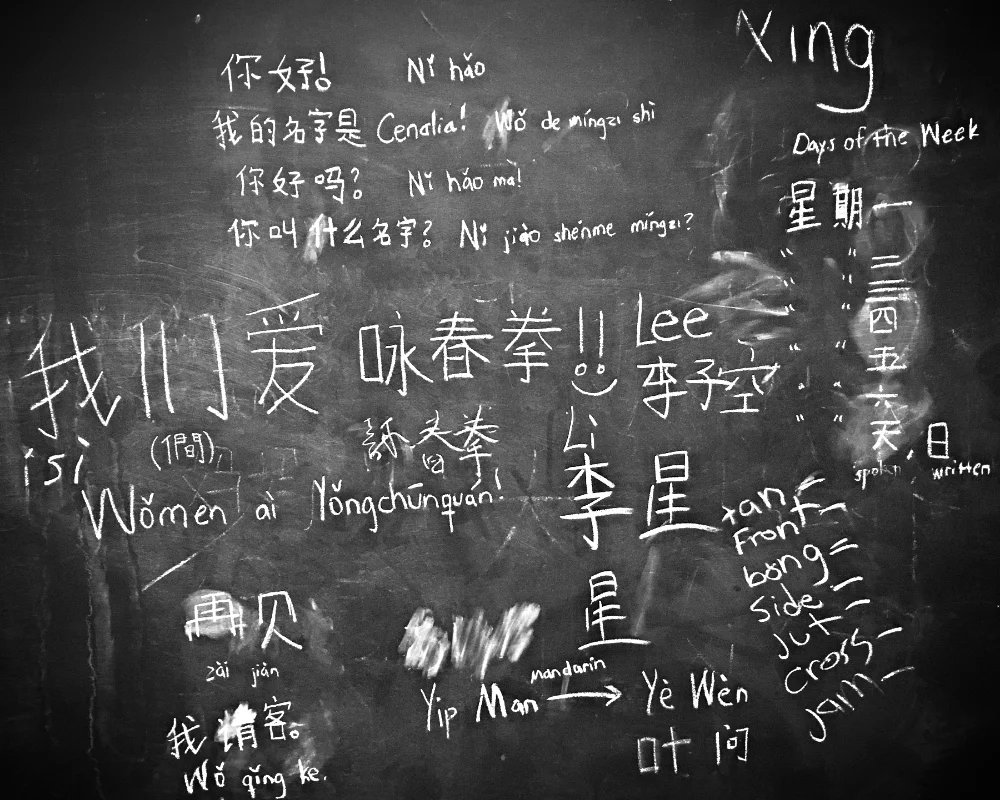 你好! Nǐ hǎo
我的名字是 Cenalia! Wǒ de míngzi shì
你好吗? Nǐ hǎo ma!
你叫什么名字? Nǐ jiào shénme míngzi?
Xing
Days of the Week
星期一
" " 二
" " 三
" " 四
" " 五
" " 六
" " 天, 日
spoken written
我们爱咏春拳!!
(們)
詠春拳
isi
Wǒmen ài Yǒngchūnquán!
Lee
李子空
Li
李星
星
tan
Front
bong
Side
Jut
Cross
Jam
再贝
zài jiàn
我请客。
Wǒ qǐng ke.
Yip Man mandarin → Yè Wèn
叶问